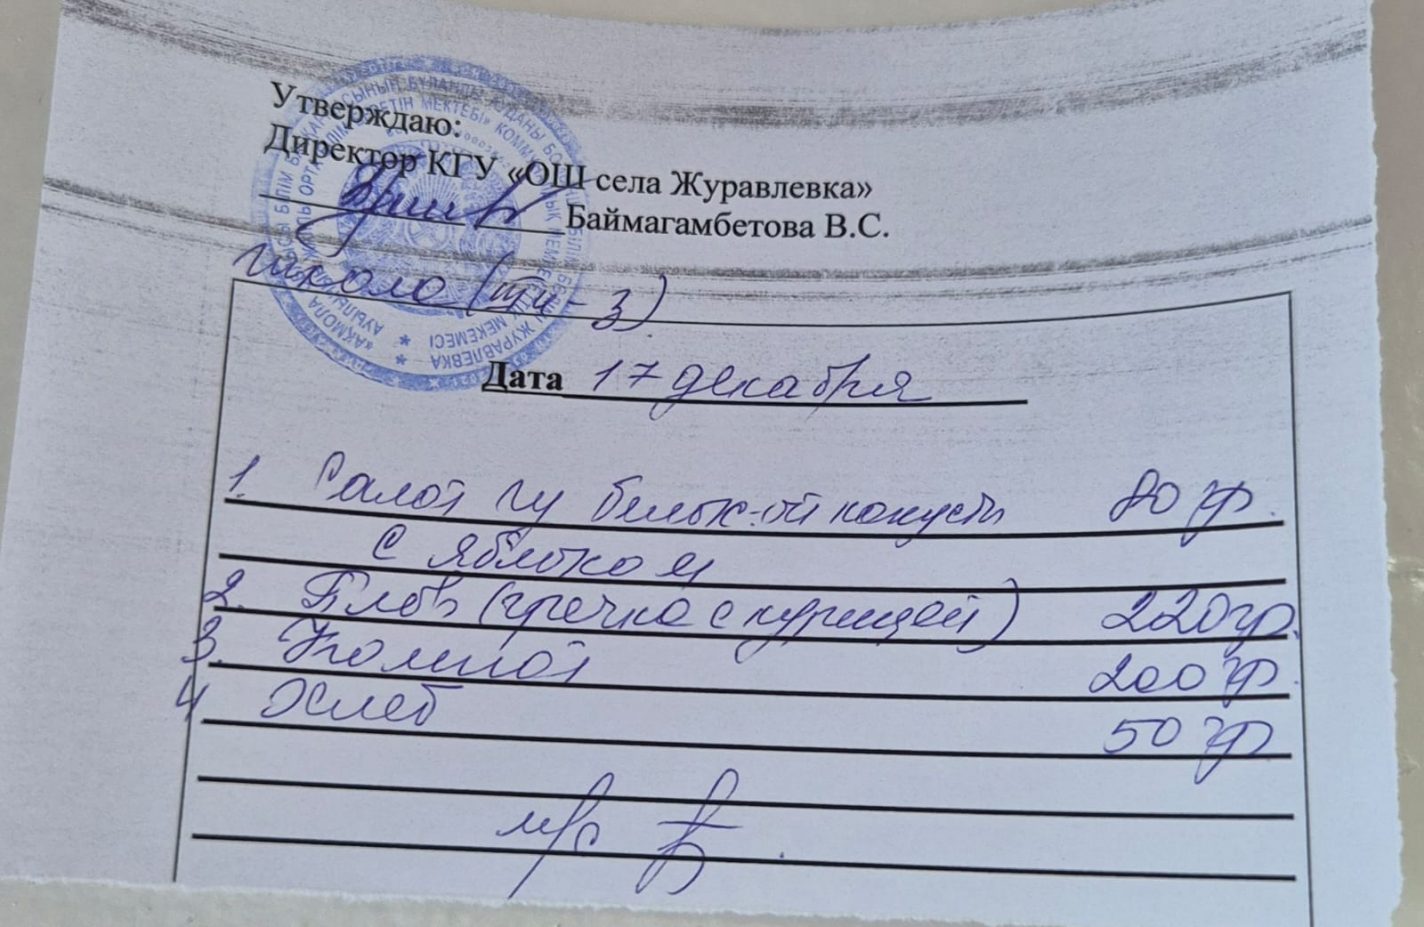 Утверждаю:
Директор КГУ «ОШ села Журавлевка»
Баймагамбетова В.С.
школа (
- 3)
Дата 17 декабря
1. Салат из белок-ой капусты 80 гр.
с яблоком
2. Плов (гречка с курицей) 220 гр.
3. Компот 200 гр.
4 Хлеб 50 гр
м/с